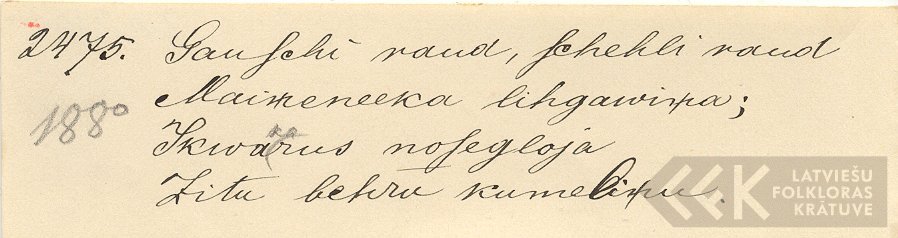 2475. Gauſchi raud, ſchehli raud
1880 Maiꞥeneeka lihgawiꞥa;
Ikwakarus noſegloja
Zitu behru kumeliꞥu.
LATVIEŠU
FOLKLORAS
KRĀTUVE